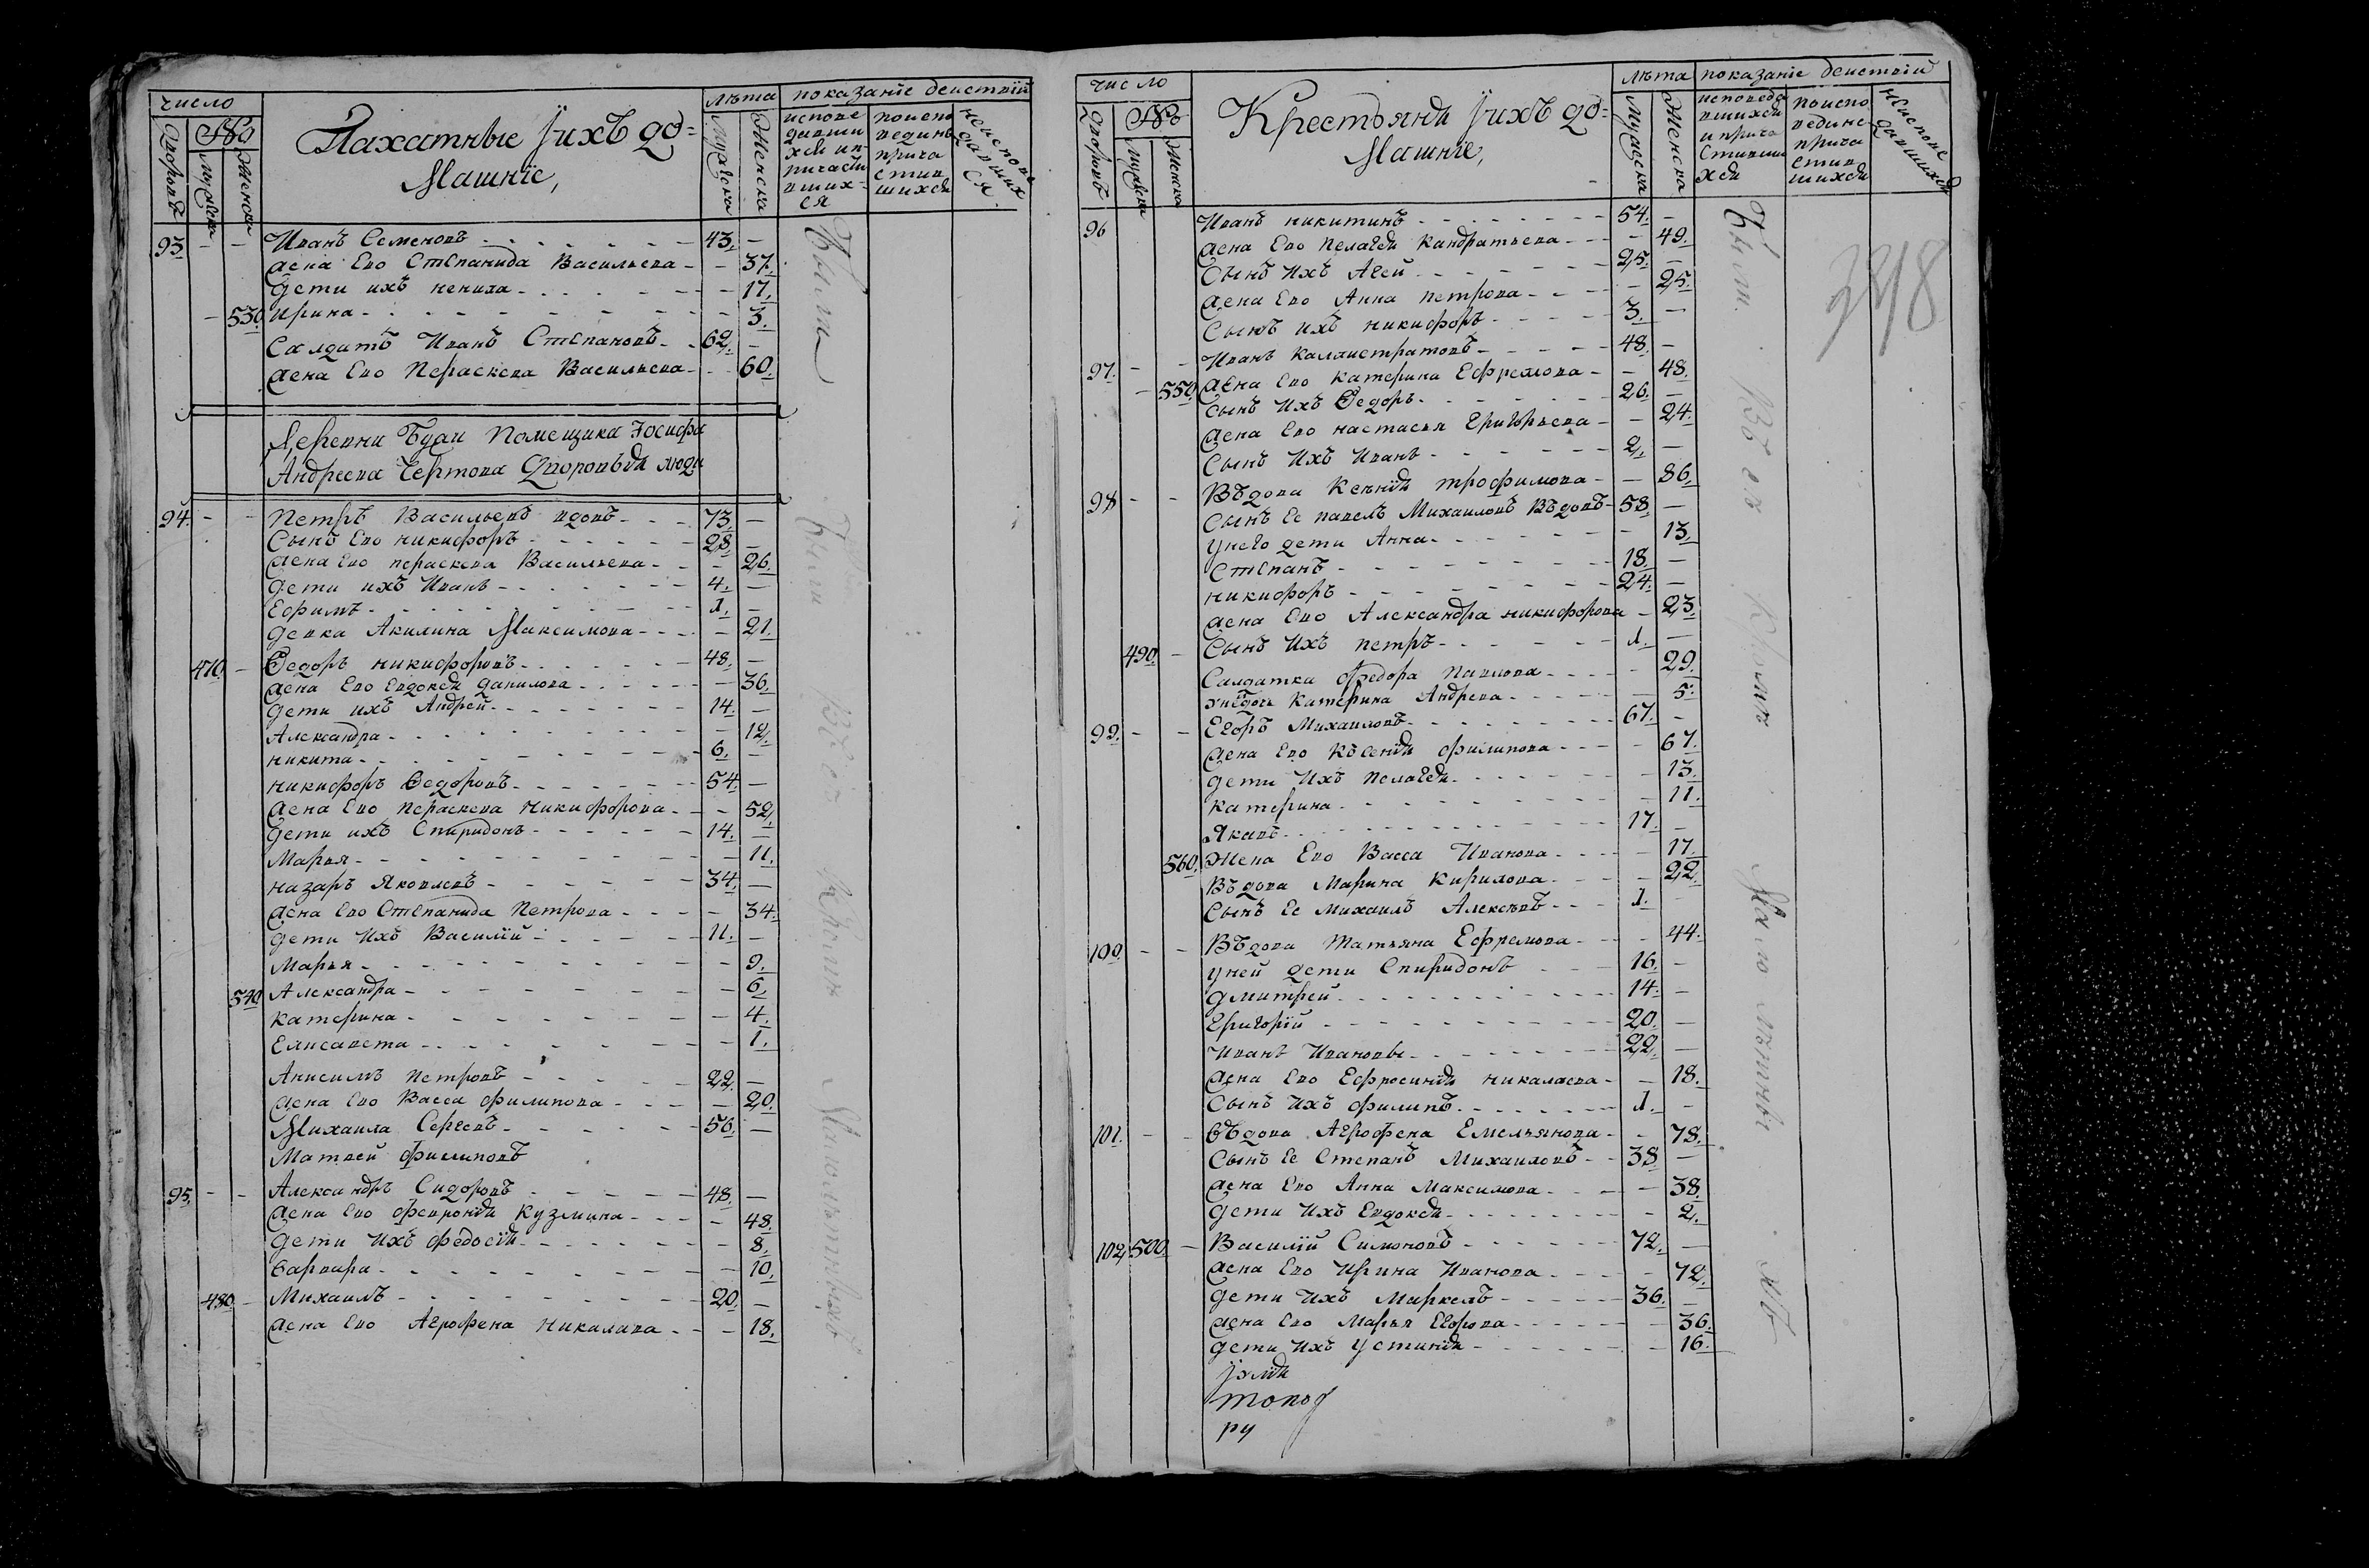 число
Дворовъ
Мужеска
Женска
Пахатные Ӱихъ до=
Машнïе,
лѣта
Мужеска
Женска
показанïе деиствïи
исповедавши
хся ип
ричасти
вших-
ся
поиспо
вединѣ
прича
стив
шихся
неиспове
давших
ся.
93. - - Иванъ Семеновъ - 43. -
Жена Ево Степанида Васильева - - 37.
Дети ихъ ненила - - 17.
- 530. ирина - - 3.
Салдатъ Иванъ Степановъ - 62. -
Жена Ево Пераскева Васильева - - 60.
Деревни Буди Помещика Iосифа
Андреева Чертова Дворовыя люди
94. - - Петръ Васильевъ вдовъ - 73. -
Сынъ Ево никифоръ - 28. -
Жена Ево пераскева Васильева - - 26.
Дети ихъ Иванъ - 4. -
Ефимъ - 1. -
Девка Акилина Максимова - - 21.
470. - Ѳедоръ никифоровъ - 48. -
Жена Ево Евдокея данилова - - 36.
Дети ихъ Андрей - 14. -
Александра - - 12.
никита - 6. -
никифоръ Ѳедоровъ - 54. -
Жена Ево Пераскева никифорова - - 52.
Дети ихъ Спиридонъ - 14. -
Марья - - 11.
назаръ Яковлевъ - 34. -
Жена Ево Степанида Петрова - - 34.
Дети Ихъ Василïй - 11. -
Марья - - 9.
540. Александра - - 6.
катерина - - 4.
Елисавета - - 1.
Анисимъ Петровъ - 22. -
Жена Ево Васса филипова - - 20.
Михаила Сергеевъ - 56. -
Матвей филиповъ
95. - - Александръ Сидоровъ - 48. -
Жена Ево февронïя кузмина - - 48.
Дети Ихъ федосïя - - 8.
варвара - - 10.
480. - Михаилъ - 20. -
Жена Ево Агрофена никалава - - 18.
Были
Были Всѣ Кромѣ Малолѣтныхъ
число
Дворовъ
Мужеска
Женска
Крестьяня Ӱихъ до=
Машнïе,
лѣта
Мужеска
Женска
показанïе деиствïи
исповеда
вшихся
иприча
стивши
хся
поиспо
ведине
прича
стив
шихся
неиспове
давшихся
96 Иванъ никитинъ - 54. -
Жена Ево пелагея Кандратьева - - 49.
Сынъ ихъ Агей - 25. -
Жена Ево Анна петрова - - 25.
Сынъ ихъ никифоръ - 3. -
97. - - Иванъ каллистратовъ - 48. -
- 550. Жена Ево катерина Ефремова - - 48.
Сынъ Ихъ Ѳедоръ - 26. -
Жена Ево настасья Григорьева - - 24.
Сынъ Ихъ Иванъ - 2. -
98 - - Въдова Ксенïя трофимова - - 86.
Сынъ Ее павелъ Михаиловъ Въдовъ - 58. -
Унего дети Анна - - 13.
Степанъ - 18. -
никифоръ - 24. -
Жена Ево Александра никифорова - 23.
490. - Сынъ Ихъ петръ - 1. -
Салдатка федора Павлова - - 29.
унеѣ дочь Катерина Андрева - - 5.
99. - - Егоръ Михаиловъ - 67. -
Жена Ево Късенïя филипова - - 67.
Дети Ихъ Пелагея - - 13.
катерина - - 11.
Яковъ - 17. -
560. Жена Ево Васса Иванова - - 17.
Въдова Марина Кирилова - - 22.
Сынъ Ее Михаилъ Алексѣвъ - 1. -
100. - - Въдова Татьяна Ефремова - - 44.
Уней дети Спиридонъ - 16. -
Дмитреи - 14. -
Григорïй - 20. -
Иванъ Ивановы - 22. -
Жена Ево Ефросинïя никалаева - - 18.
Сынъ Ихъ филипъ - 1. -
101. - - Въдова Агрофена Емельянова - - 78.
Сынъ Ее Степанъ Михаиловъ - 38. -
Жена Ево Анна Максимова - - 38.
Дети Ихъ Евдокея - - 2.
102. 500. - Василïй Симоновъ - 72. -
Жена Ево Ирина Иванова - - 72.
Дети Ихъ Маркелъ - 36. -
Жена Ево Марья Егорова - - 36.
Дети Ихъ Устинïя - - 16.
ру
Были Всѣ Кромѣ Малолѣтныхъ